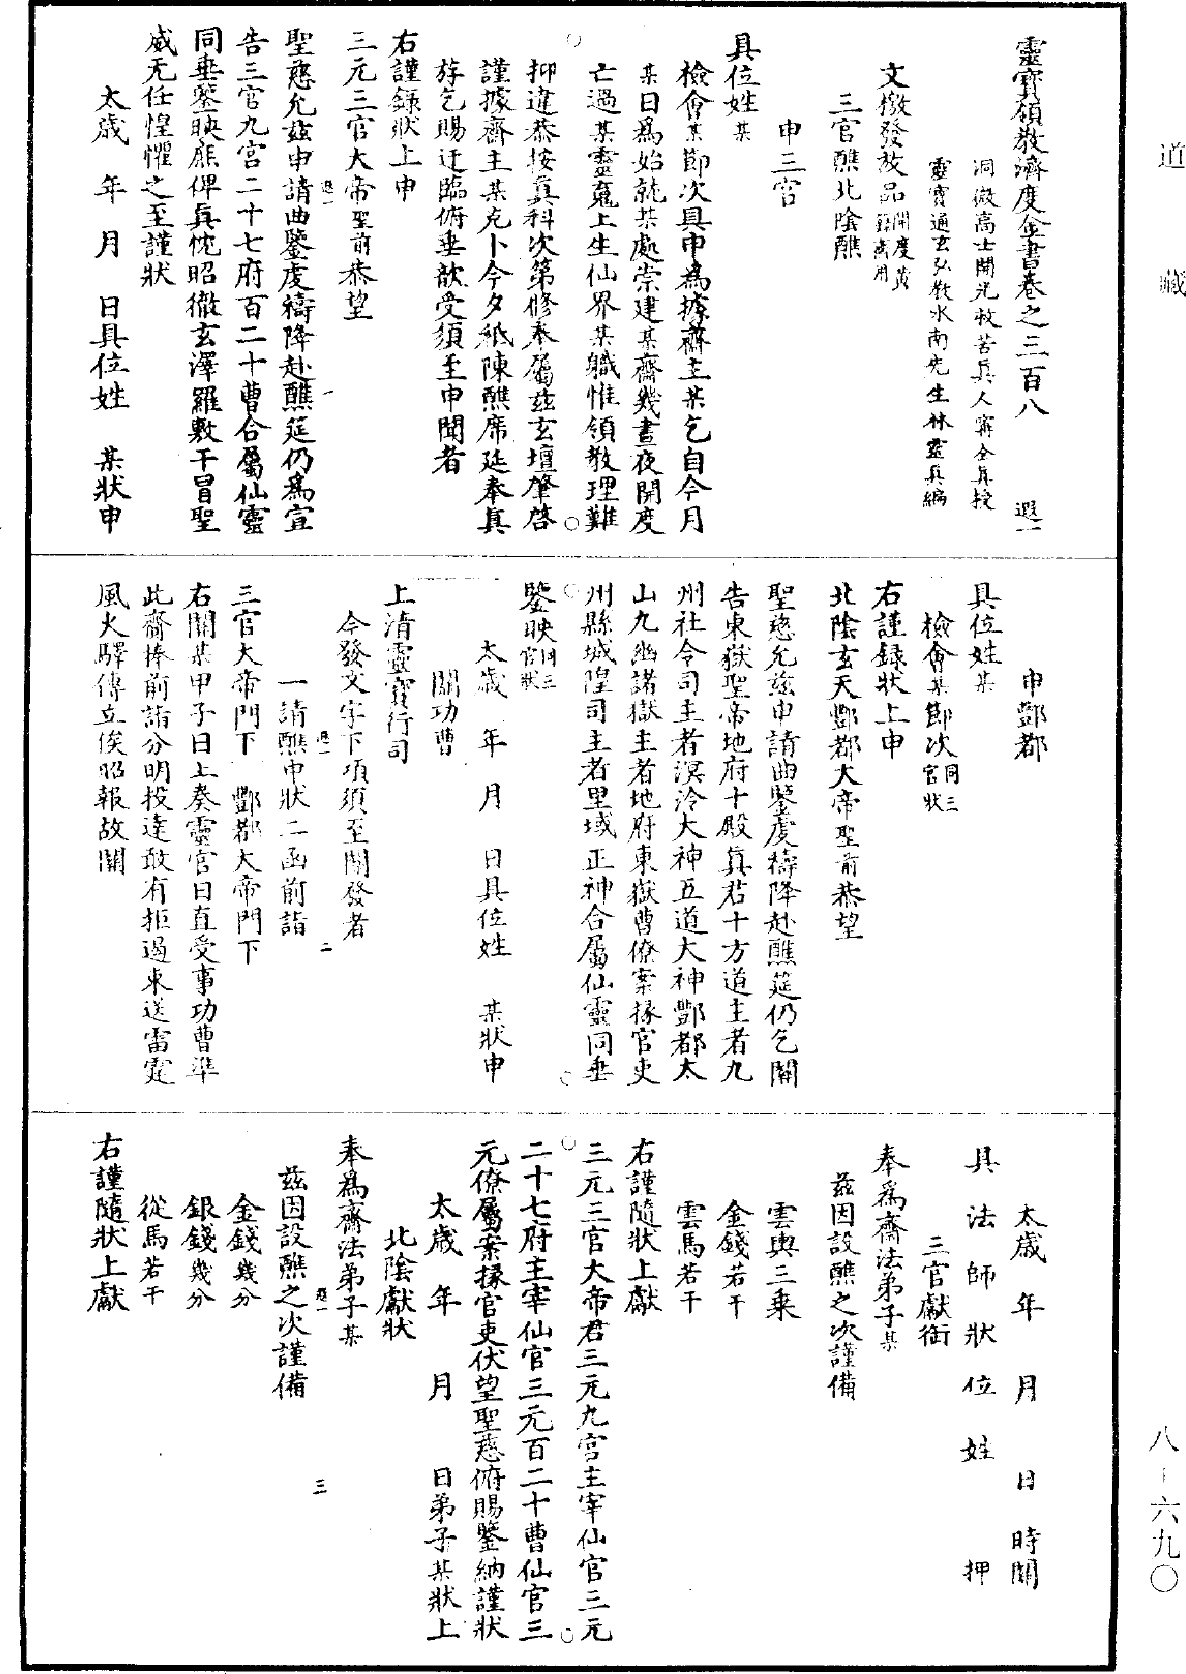 道藏
靈寶領教濟度金書卷之三百八　遐一
洞微高士開光救苦真人甯全真授
靈寶通玄弘教水南先生林靈真編
文檄發放品開度黃籙齋用
三官醮北陰醮
申三官
具位姓某
檢會某節次具申爲據齋主某乞自今月
某日爲始就某處崇建某齋幾晝夜開度
亡過某靈魂上生仙界某職惟領教理難
抑違恭按真科次第修奉屬茲玄壇肇啓
謹據齋主某充卜今夕祇陳醮席延奉真
斿乞賜迂臨俯垂歆受須至申聞者
右謹錄狀上申
三元三官大帝聖前恭望
遐一　一
聖慈允茲申請曲鑒虔禱降赴醮筵仍爲宣
告三官九宮二十七府百二十曹合屬仙靈
同垂鑒映庶俾真忱昭徹玄澤羅敷干冒聖
威无任惶懼之至謹狀
太歲　年　月　日具位姓　某狀申
申酆都
具位姓某
檢會某節次同三官狀
右謹錄狀上申
北陰玄天酆都大帝聖前恭望
聖慈允茲申請曲鑒虔禱降赴醮筵仍乞關
告東嶽聖帝地府十殿真君十方道主者九
州社令司主者溟泠大神五道大神酆都太
山九幽諸獄主者地府東嶽曹僚案掾官吏
州縣城隍司主者里域正神合屬仙靈同垂
鑒映同三官狀
太歲　年　月　日具位姓　某狀申
關功曹
上清靈寶行司
今發文字下項須至關發者
遐一　二
一請醮申狀二函前詣
三官大帝門下　酆都大帝門下
右關某甲子日上奏靈官日直受事功曹準
此齋捧前詣分明投達敢有拒遏束送雷霆
風火驛傳立俟昭報故關
太歲　年　月　日　時關
具法師狀位姓　押
三官獻銜
奉爲齋法弟子某
茲因設醮之次謹備
雲輿三乘
金錢若干
雲馬若干
右謹隨狀上獻
三元三官大帝君三元九宮主宰仙官三元
二十七府主宰仙官三元百二十曹仙官三
元僚屬案掾官吏伏望聖慈俯賜鑒納謹狀
太歲　年　月　日弟子某狀上
北陰獻狀
奉爲齋法弟子某
遐一　三
茲因設醮之次謹備
金錢幾分
銀錢幾分
從馬若干
右謹隨狀上獻
八－六九〇